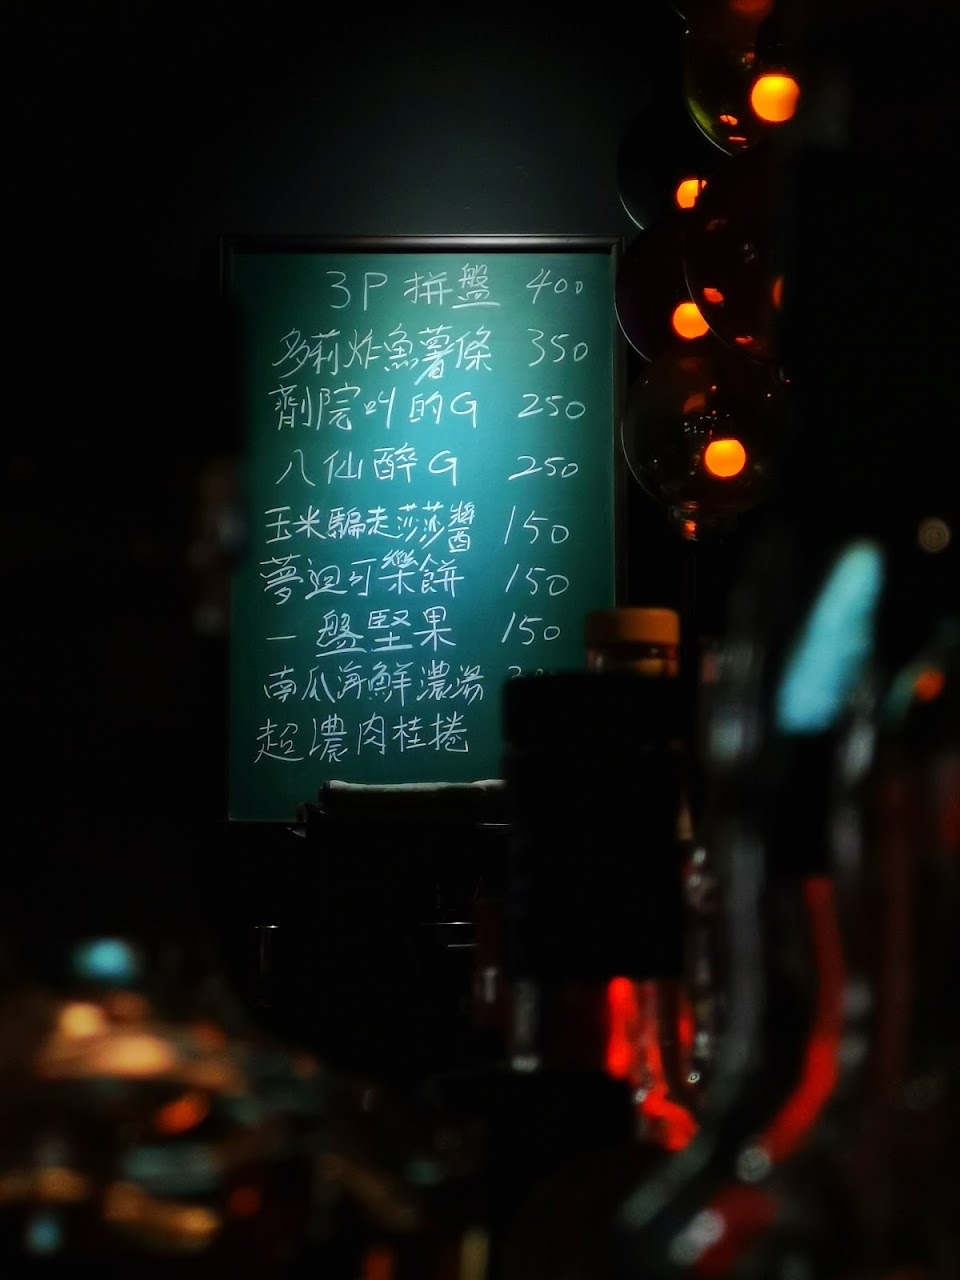 3P 拼盤 400
多莉炸魚薯條 350
劑院叫的G 250
八仙醉G 250
玉米騙走莎莎醬 150
夢迴可樂餅 150
一盤堅果 150
南瓜海鮮濃湯
超濃肉桂捲